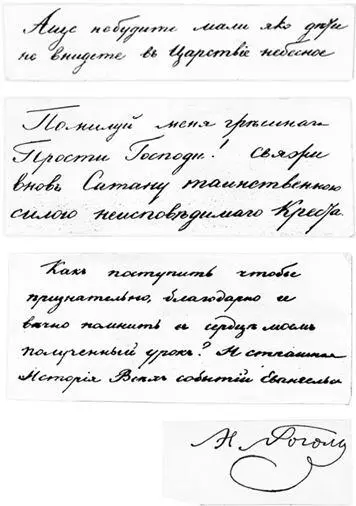 Аще небудите мали яко дѣти
не внидете въ Царствіе небесное
Помилуй меня грѣшнаго
Прости Господи! Свяжи
вновь Сатану таинственною
силою неисповѣдимаго Креста
Какъ поступить чтобы
признательно, благодарно и
вѣчно помнить въ сердцѣ моемъ
полученный урокъ? И страшная
Исторія Всѣхъ событій Евангельс
Н. Гоголь